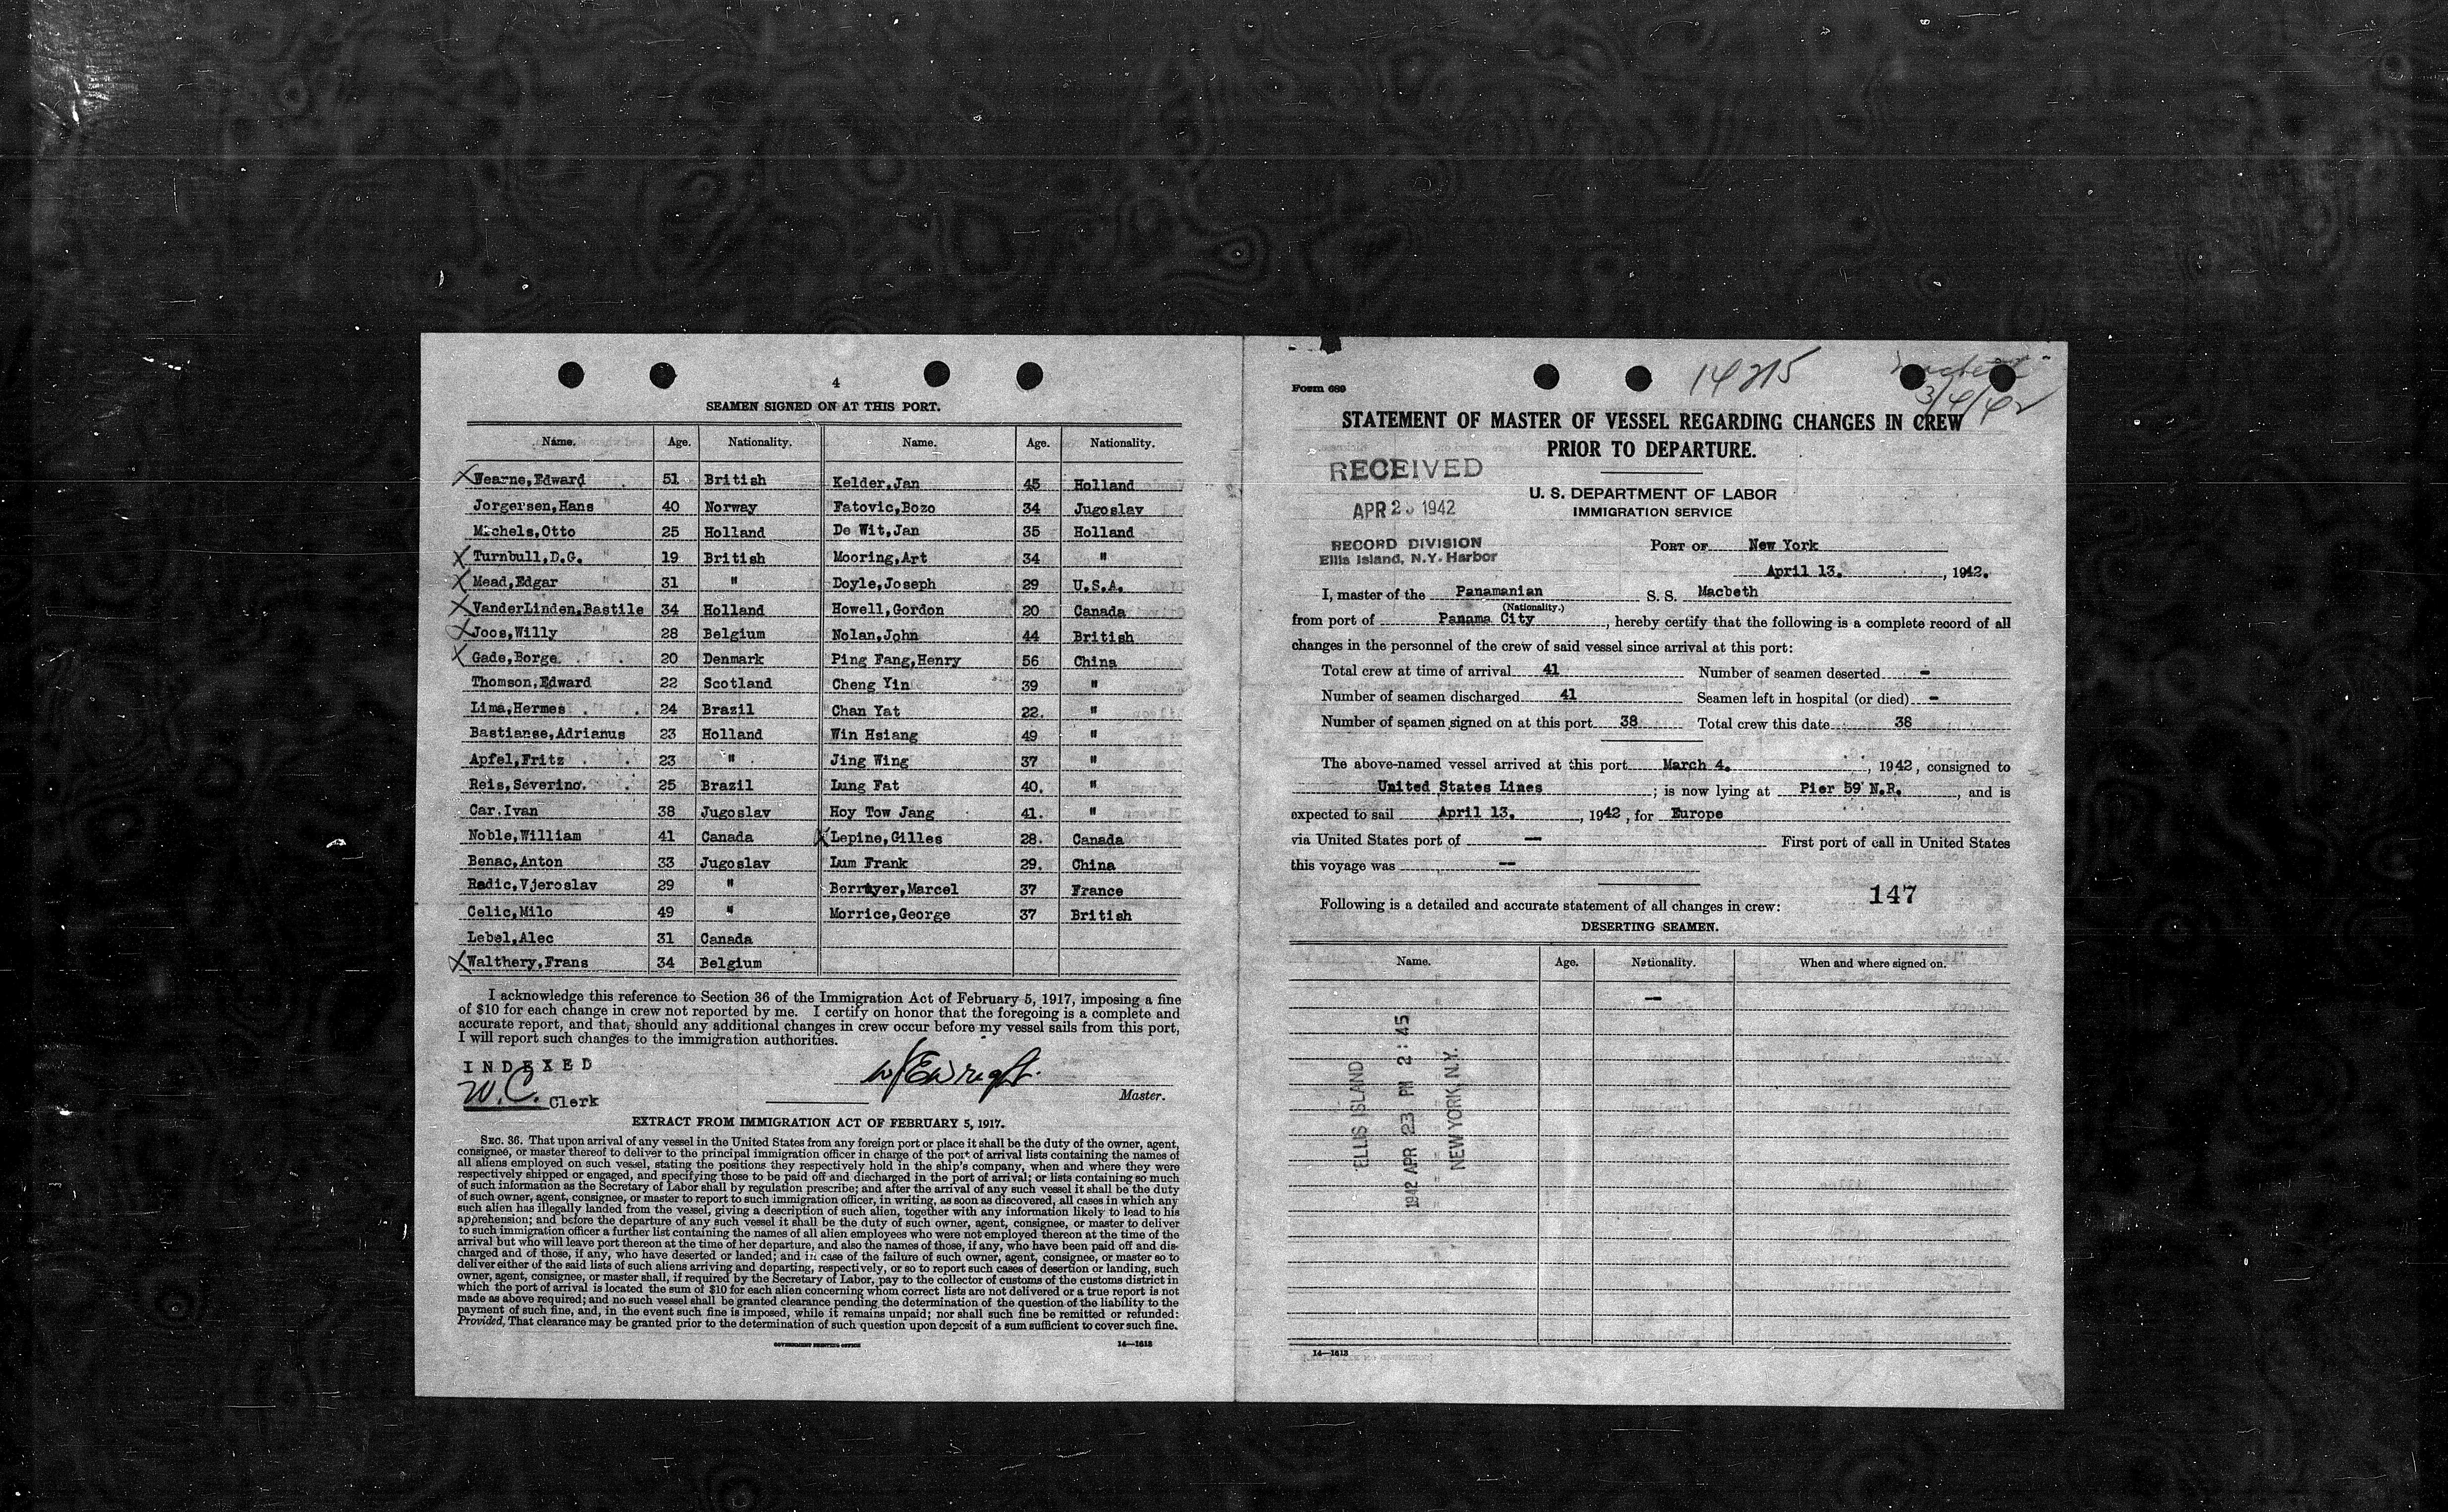 4
SEAMEN SIGNED ON AT THIS PORT.
Name. Age. Nationality. Name. Age. Nationality.
X Wearne,Edward 51 British Kelder,Jan 45 Holland
Jorgersen,Hans " 40 Norway Fatovic,Bozo 34 Jugoslav
Michels,Otto 25 Holland De Wit,Jan 35 Holland
X Turnbull,D.G. " 19 British Mooring,Art 34 "
X Mead,Edgar " 31 " Doyle,Joseph 29 U.S.A.
X VanderLinden,Bastile 34 Holland Howell,Gordon 20 Canada
X Joos,Willy " 28 Belgium Nolan,John 44 British
X Gade,Borge. 20 Denmark Ping Fang,Henry 56 China
Thomson,Edward 22 Scotland Cheng Yin 39 "
Lima,Hermes 24 Brazil Chan Yat 22. "
Bastianse,Adrianus 23 Holland Win Hsiang 49 "
Apfel,Fritz 23 " Jing Wing 37 "
Reis,Severino. 25 Brazil Lung Fat 40. "
Car.Ivan 38 Jugoslav Hoy Tow Jang 41. "
Noble,William " 41 Canada X Lepine,Gilles 28. Canada
Benac,Anton 33 Jugoslav Lum Frank 29. China
Radic,Vjeroslav 29 " Marcel 37 France
Celic,Milo 49 " Morrice,George 37 British
Lebel,Alec 31 Canada
X Walthery,Frans 34 Belgium
I acknowledge this reference to Section 36 of the Immigration Act of February 5, 1917, imposing a fine
of $10 for each change in crew not reported by me. I certify on honor that the foregoing is a complete and
accurate report, and that, should any additional changes in crew occur before my vessel sails from this port,
I will report such changes to the immigration authorities.
INDEXED
W.C. Clerk
Master.
EXTRACT FROM IMMIGRATION ACT OF FEBRUARY 5, 1917.
SEC. 36. That upon arrival of any vessel in the United States from any foreign port or place it shall be the duty of the owner, agent,
consignee, or master thereof to deliver to the principal immigration officer in charge of the port of arrival lists containing the names of
all aliens employed on such vessel, stating the positions they respectively hold in the ship's company, when and where they were
respectively shipped or engaged, and specifying those to be paid off and discharged in the port of arrival; or lists containing so much
of such information as the Secretary of Labor shall by regulation prescribe; and after the arrival of any such vessel it shall be the duty
of such owner, agent, consignee, or master to report to such immigration officer, in writing, as soon as discovered, all cases in which any
such alien has illegally landed from the vessel, giving a description of such alien, together with any information likely to lead to his
apprehension; and before the departure of any such vessel it shall be the duty of such owner, agent, consignee, or master to deliver
to such immigration officer a further list containing the names of all alien employees who were not employed thereon at the time of the
arrival but who will leave port thereon at the time of her departure, and also the names of those, if any, who have been paid off and dis-
charged and of those, if any, who have deserted or landed; and in case of the failure of such owner, agent, consignee, or master so to
deliver either of the said lists of such aliens arriving and departing, respectively, or so to report such cases of desertion or landing, such
owner, agent, consignee, or master shall, if required by the Secretary of Labor, pay to the collector of customs of the customs district in
which the port of arrival is located the sum of $10 for each alien concerning whom correct lists are not delivered or a true report is not
made as above required; and no such vessel shall be granted clearance pending the determination of the question of the liability to the
payment of such fine, and, in the event such fine is imposed, while it remains unpaid; nor shall such fine be remitted or refunded:
Provided, That clearance may be granted prior to the determination of such question upon deposit of a sum sufficient to cover such fine.
GOVERNMENT PRINTING OFFICE 14—1613
Form 689
14215
3/4/42
STATEMENT OF MASTER OF VESSEL REGARDING CHANGES IN CREW
PRIOR TO DEPARTURE.
RECEIVED
APR 2 1942
RECORD DIVISION
Ellis Island, N.Y. Harbor
U. S. DEPARTMENT OF LABOR
IMMIGRATION SERVICE
PORT OF New York
April 13. , 1942.
I, master of the Panamanian S. S. Macbeth
(Nationality.)
from port of Panama City , hereby certify that the following is a complete record of all
changes in the personnel of the crew of said vessel since arrival at this port:
Total crew at time of arrival 41 Number of seamen deserted -
Number of seamen discharged 41 Seamen left in hospital (or died) -
Number of seamen signed on at this port 38 Total crew this date 38
The above-named vessel arrived at this port March 4. , 1942, consigned to
United States Lines ; is now lying at Pier 59 N.R. , and is
expected to sail April 13. , 1942, for Europe
via United States port of — First port of call in United States
this voyage was —
147
Following is a detailed and accurate statement of all changes in crew:
DESERTING SEAMEN.
Name. Age. Nationality. When and where signed on.
—
ELLIS ISLAND
1942 APR 23 PM 2:45
NEW YORK, N.Y.
14—1613